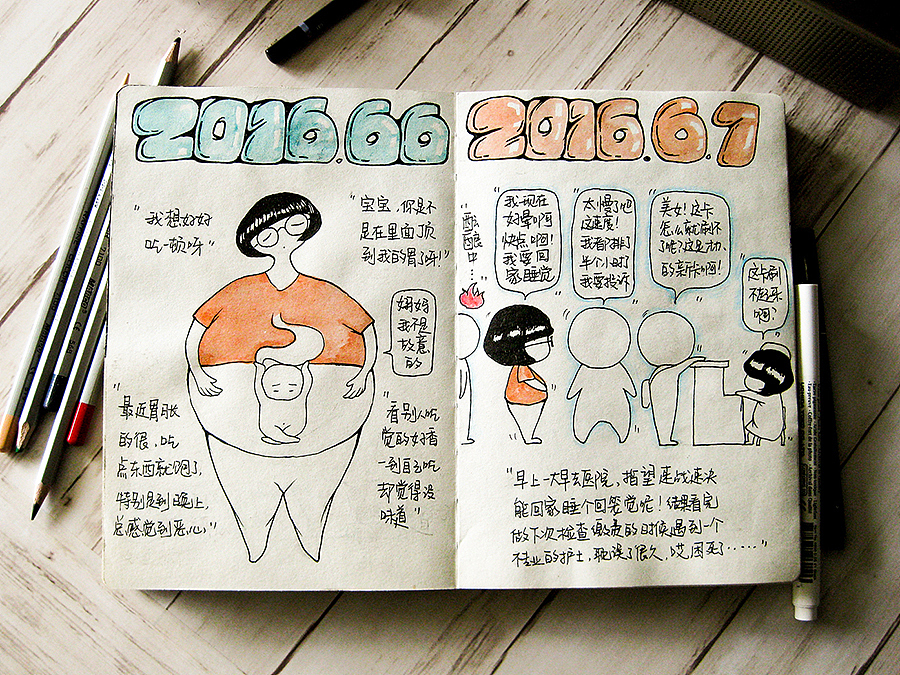 2016.6.6
"我想好好
吃一顿呀"
"宝宝，你是不
是在里面顶
到我的胃了呀！"
妈妈
我不是
故意
的
"最近胃胀
的很，吃
点东西就饱了，
特别是到晚上，
总感觉到恶心。"
"看别人吃
觉的好香
一到自己吃
却觉得没
味道"
2016.6.7
酝
酿
中
…
我现在
好晕啊
快点啊！
我要回
家睡觉
太慢了吧
这速度！
我看排了
半个小时了
我要投诉
美女！这卡
怎么就刷不
了呢？这是才办
的新卡啊！
这卡刷
不起来
啊？
"早上一大早去医院，指望速战速决
能回家睡个回笼觉呢！结果看完
做下次检查缴费的时候遇到一个
不专业的护士，耽误了很久，哎困死了……"